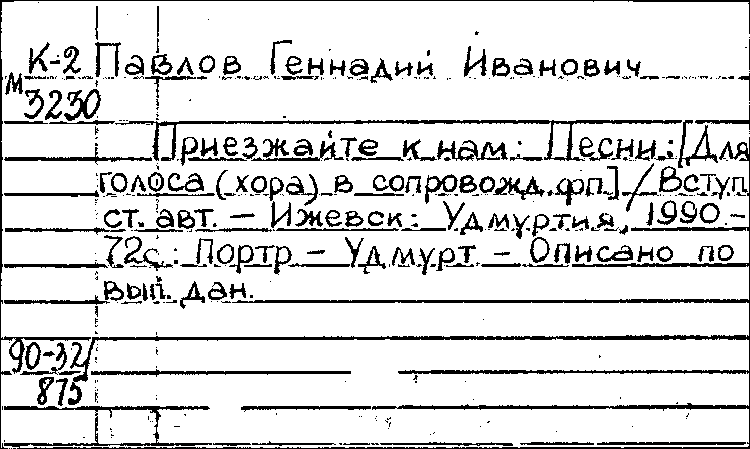 К-2 Павлов Геннадий Иванович
м 3230
Приезжайте к нам: Песни: [Для
голоса (хора) в сопровожд. фп.] / Вступ.
ст. авт. – Ижевск: Удмуртия, 1990. –
72с.: Портр. – Удмурт. – Описано по
вып. дан.
90-32/
875